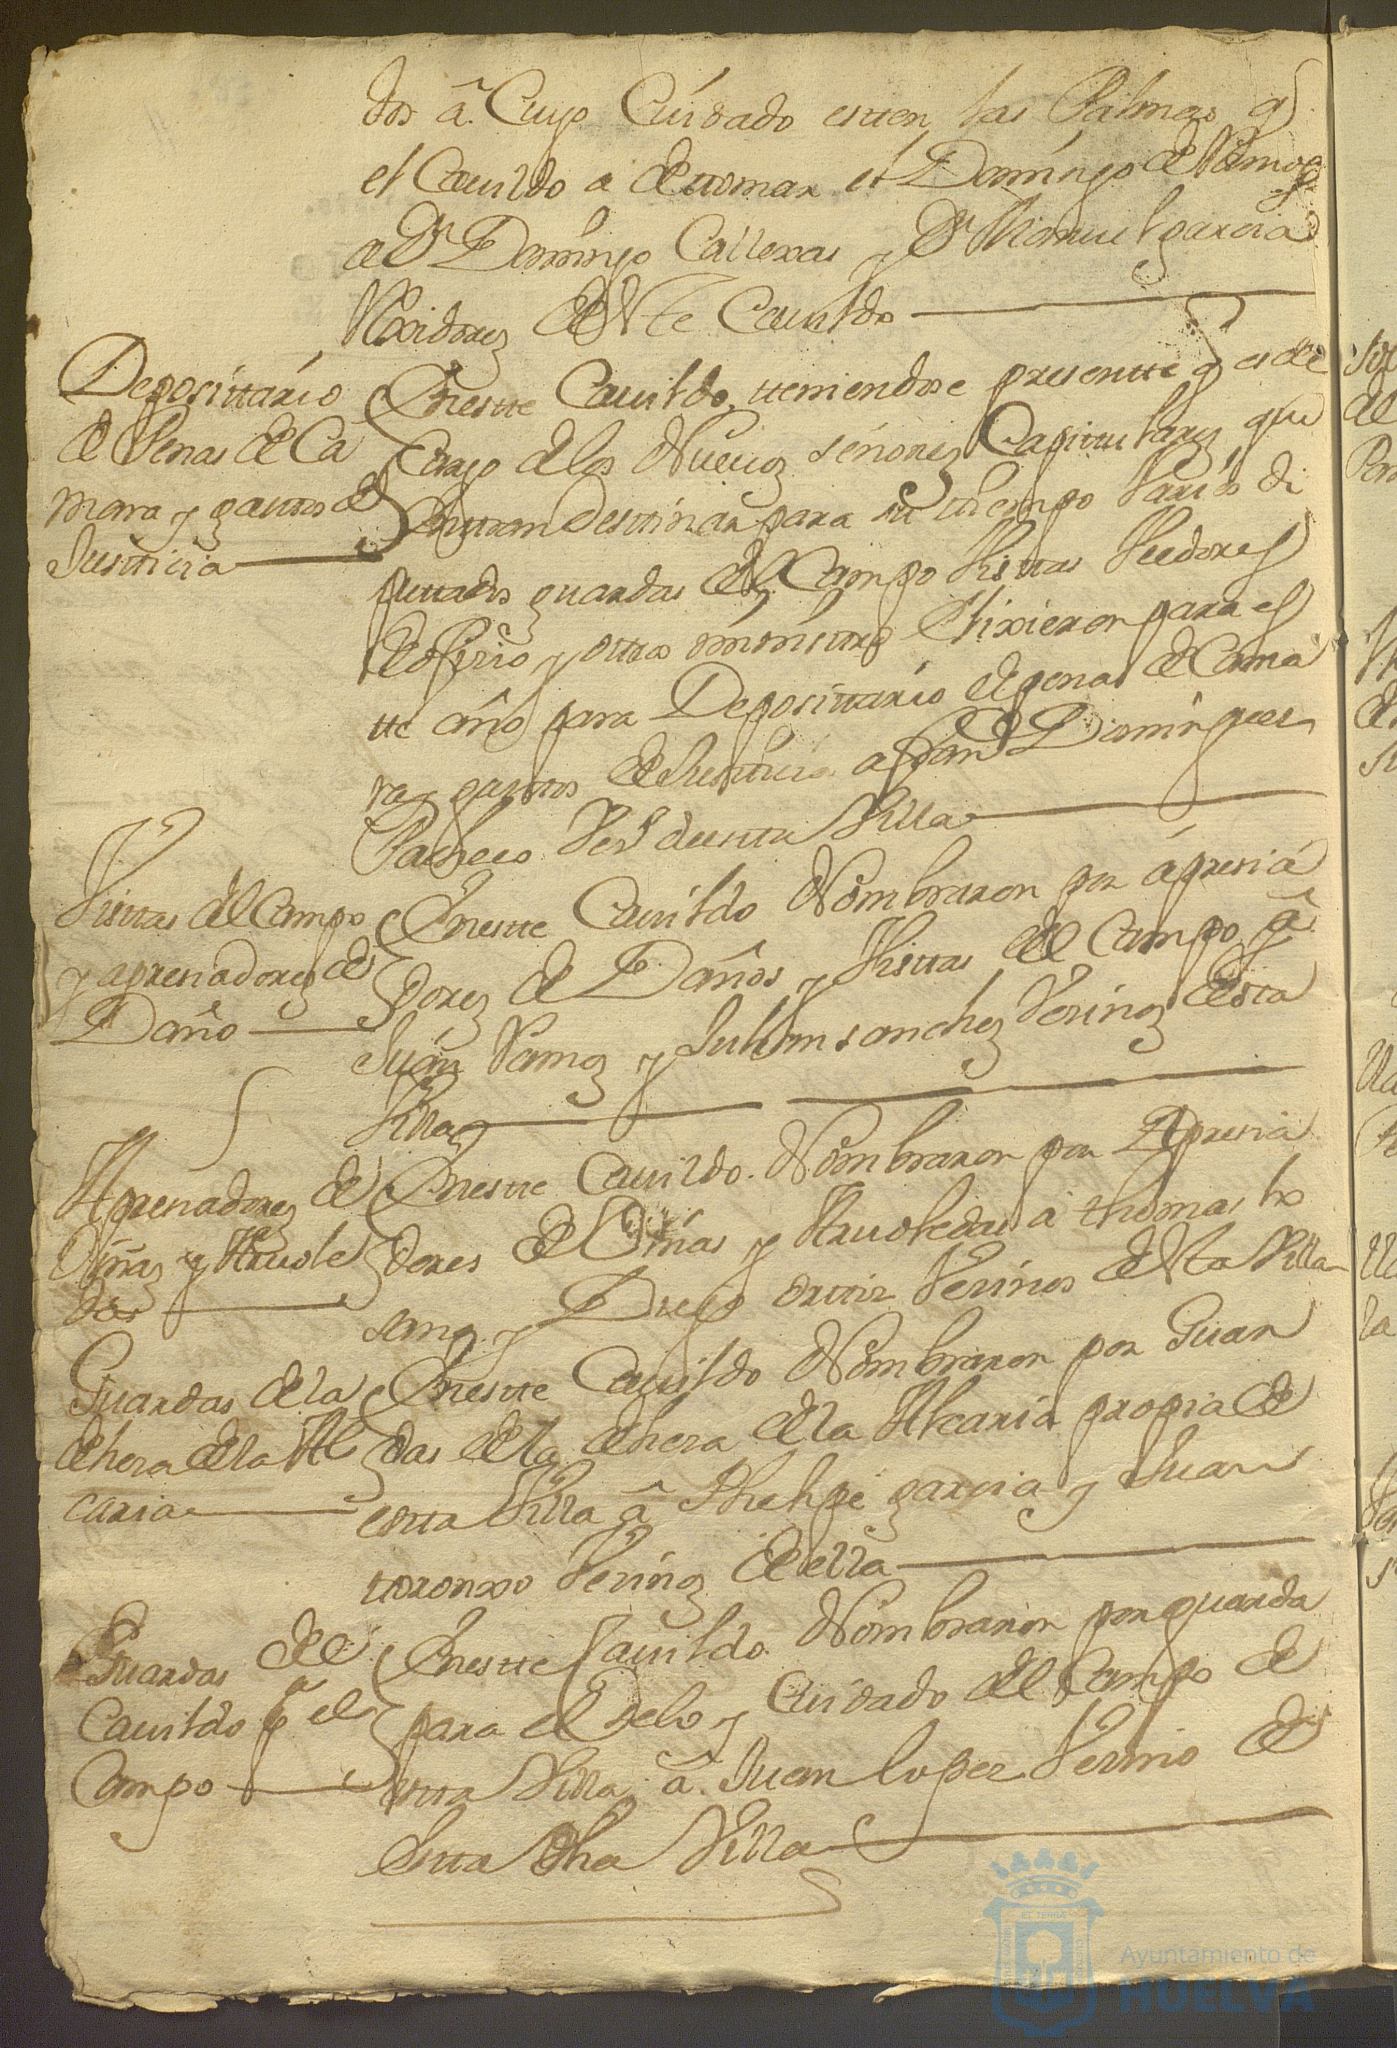 dos â Cuyo Cuidado esten las Palmas q
el Cavildo a de tomar el Domingo de Ramos
a Dn Domingo Callexas y Dn Manuel garcia
Rexidores de este Cavildo
Deposittario
de Penas de Ca
mara y gasttos de
Justticia
En estte Cavildo, tteniendose presentte q es de
Cargo de los Nuevos señores Capitulares que
Enttran Desttinar para su tiempo Varios di
puttados guardas del Campo Visttas Veedores
de Oficio y ottros Elixieron para es
tte año para Deposittario de penas de Cama
ra y gasttos de Justticia a Dominguez
Pacheco Vezo de estta Villa
Visttas del Campo
y apreciadores de
Daño
En estte Cavildo Nombraron por aprecia
dores de Daños y Visttas del Campo â
Juan Ramos y Julian sanchez Vecinos de esta
Villa
Apreciadores de
Viñas y Arvole
das
En estte Cavildo Nombraron por Aprecia
dores de Viñas y Arvoledas a thomas lo
sano y Diego orttiz Vecinos de esta Villa
Guardas de la
dehesa de la Al
caria
En estte Cavildo Nombraron por Guar
das de la dehesa de la Alcaria propia de
estta Villa â Phelipe garcia y Juan
ttoronxo Vecinos de ella
Guardas de
Cavildo pa el
Campo
En estte Cavildo Nombraron por guarda
para el Selo y Cuidado del Campo de
estta Villa â Juan lopez Vecino de
Estta dha Villa
Ayuntamiento de
HUELVA